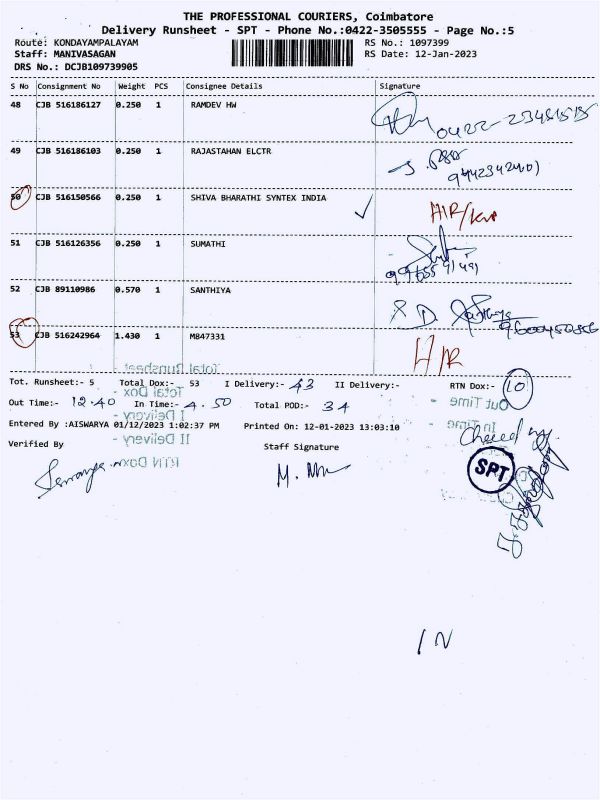 THE PROFESSIONAL COURIERS, Coimbatore
Delivery Runsheet - SPT - Phone No.:0422-3505555 - Page No.:5
Route: KONDAYAMPALAYAM RS No.: 1097399
Staff: MANIVASAGAN RS Date: 12-Jan-2023
DRS No.: DCJB109739905
S No Consignment No Weight PCS Consignee Details Signature
48 CJB 516186127 0.250 1 RAMDEV HW
49 CJB 516186103 0.250 1 RAJASTAHAN ELCTR
50 CJB 516150566 0.250 1 SHIVA BHARATHI SYNTEX INDIA
51 CJB 516126356 0.250 1 SUMATHI
52 CJB 89110986 0.570 1 SANTHIYA
53 CJB 516242964 1.430 1 M847331 H/R
Tot. Runsheet:- 5 Total Dox:- 53 I Delivery:- 43 II Delivery:- RTN Dox:- 10
Out Time:- 12.40 In Time:- 4.50 Total POD:- 34
Entered By :AISWARYA 01/12/2023 1:02:37 PM Printed On: 12-01-2023 13:03:10
Verified By Staff Signature
SPT
IN